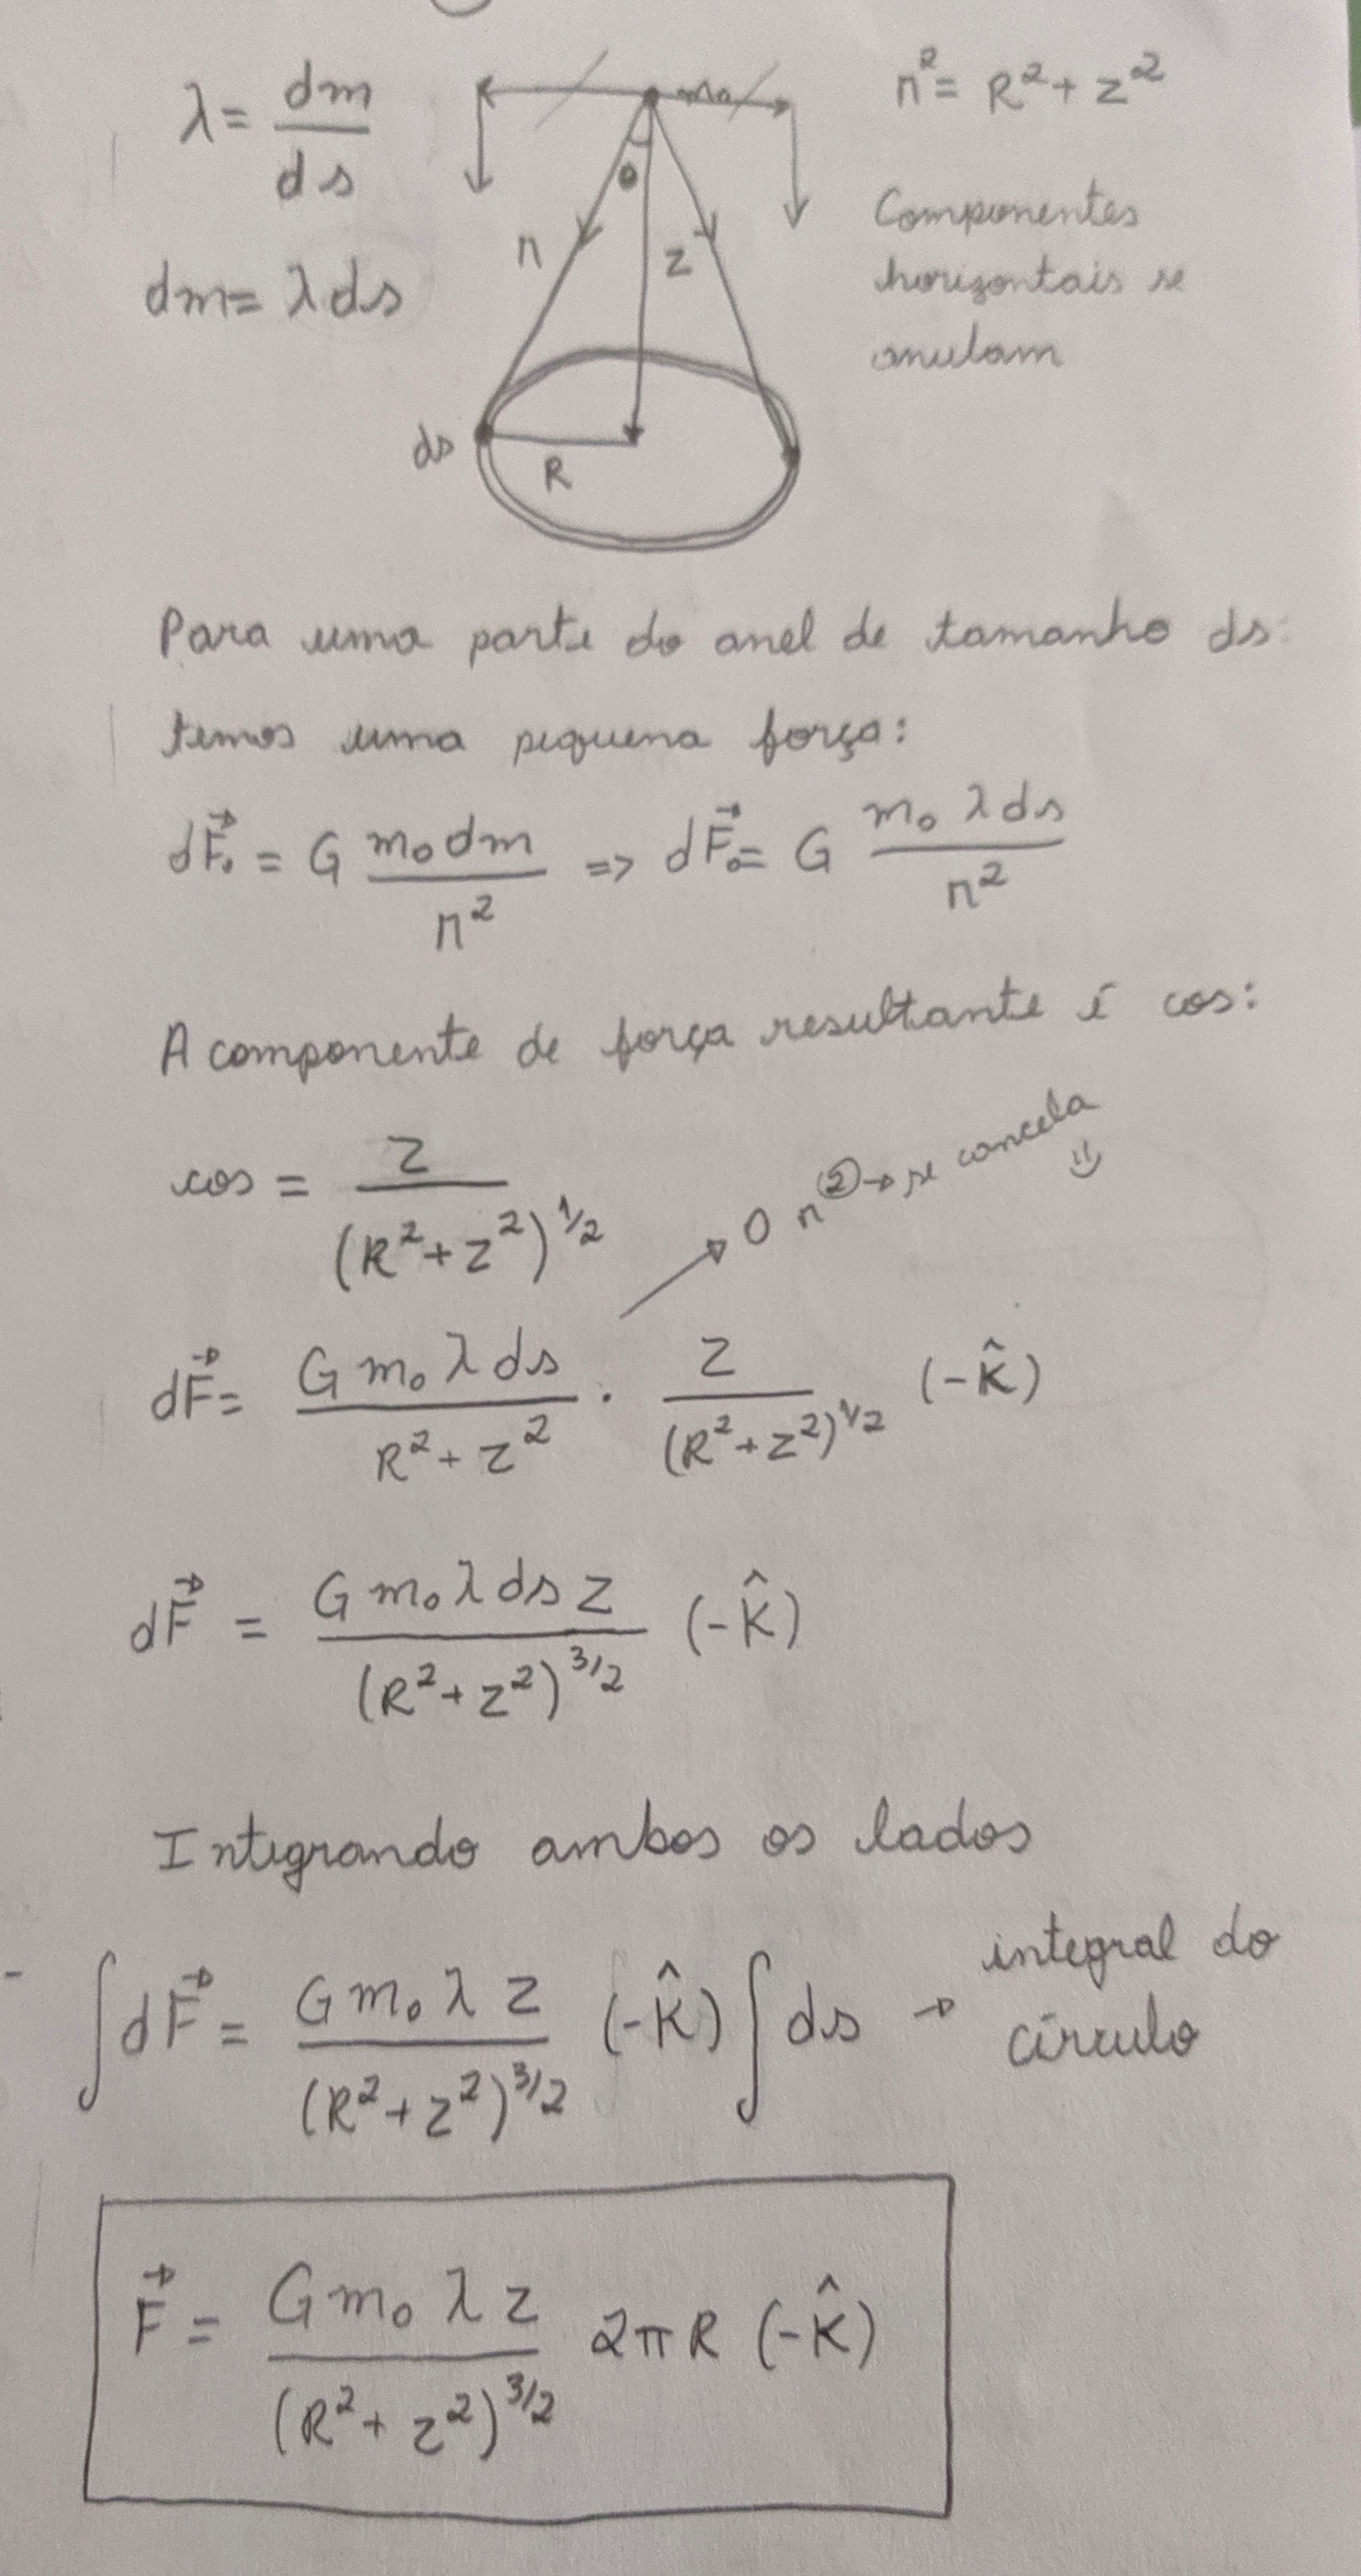 λ = dm/ds
m₀
r² = R² + z²
θ
Componentes
horizontais se
anulam
r
z
dm = λ ds
ds
R
Para uma parte do anel de tamanho ds:
temos uma pequena força:
dF⃗₀ = G m₀ dm / r² => dF⃗₀ = G m₀ λ ds / r²
A componente de força resultante é cos:
cos = z / (R² + z²)^1/2
O r² → se cancela
dF⃗ = G m₀ λ ds / R² + z² · z / (R² + z²)^1/2 (-k̂)
dF⃗ = G m₀ λ ds z / (R² + z²)^3/2 (-k̂)
Integrando ambos os lados
∫dF⃗ = G m₀ λ z / (R² + z²)^3/2 (-k̂) ∫ds → integral do
círculo
F⃗ = G m₀ λ z / (R² + z²)^3/2 2πR (-k̂)